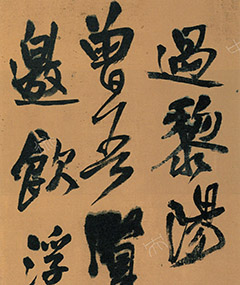 過黎湯
曾吾
邀飲浮